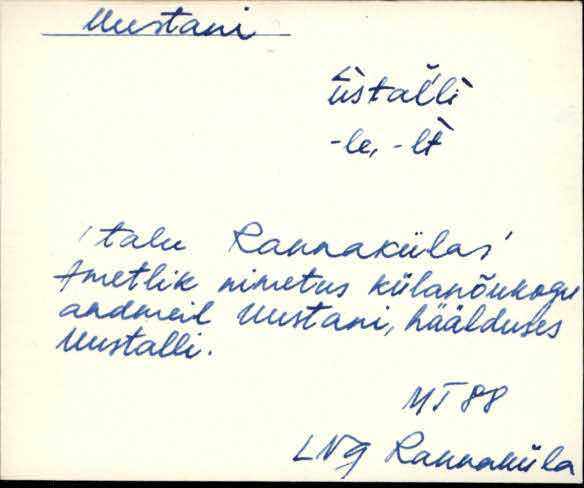 Uustani
ùstal̆li
-le, -lt
'talu Rannakülas'
Ametlik nimetus külanõukogu
andmeil Uustani, häälduses
Uustalli.
MT 88
LNg Rannaküla